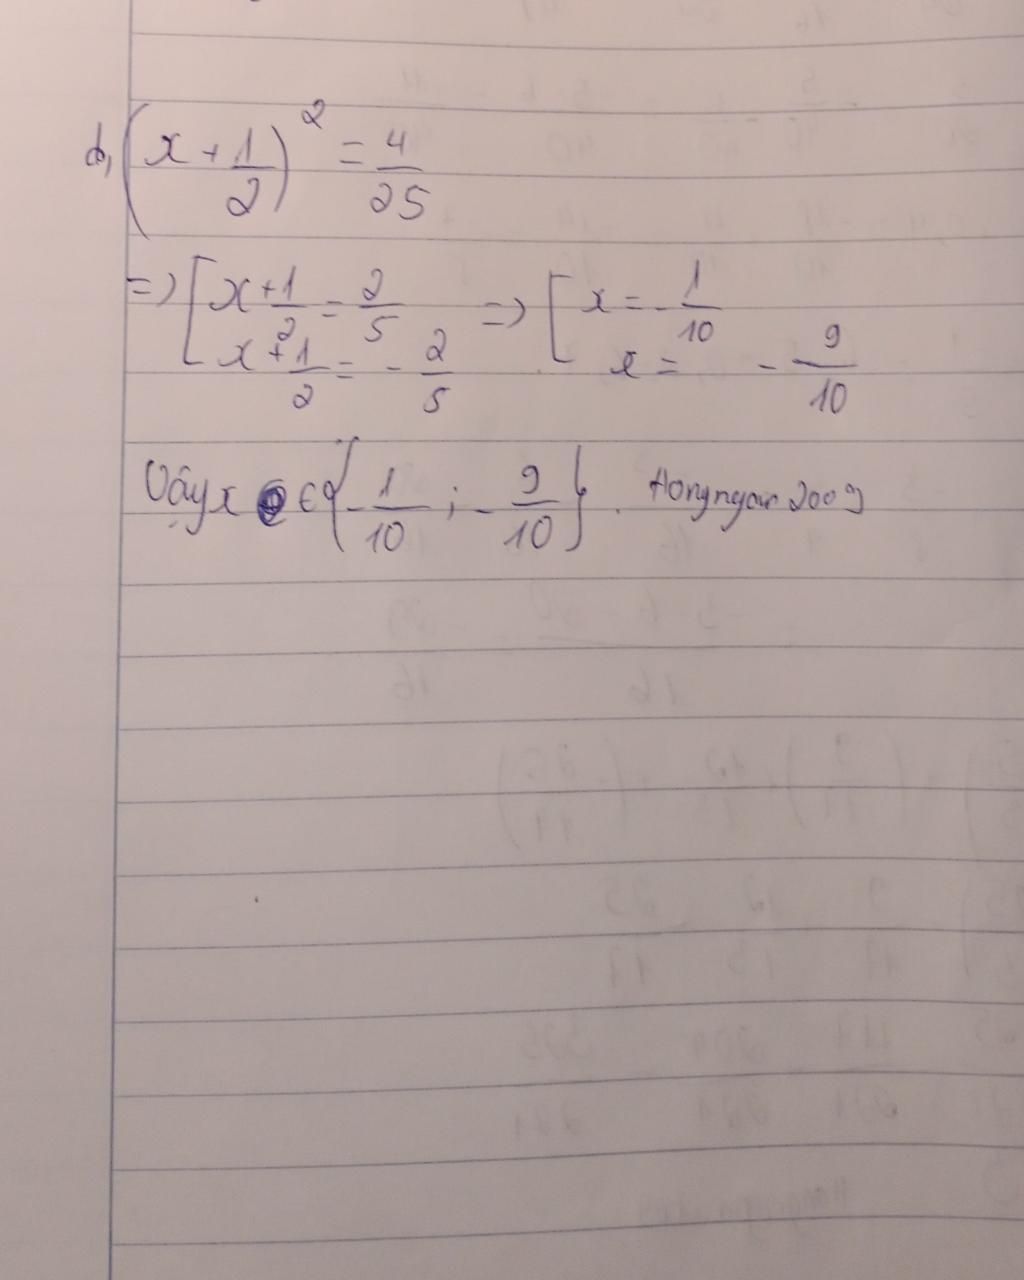 d, (x + 1/2)² = 4/25
=> [ x + 1/2 = 2/5 => [ x = - 1/10
x + 1/2 = - 2/5 x = - 9/10
Vậy x ∈ { - 1/10 ; - 9/10 } . Hongngan2009